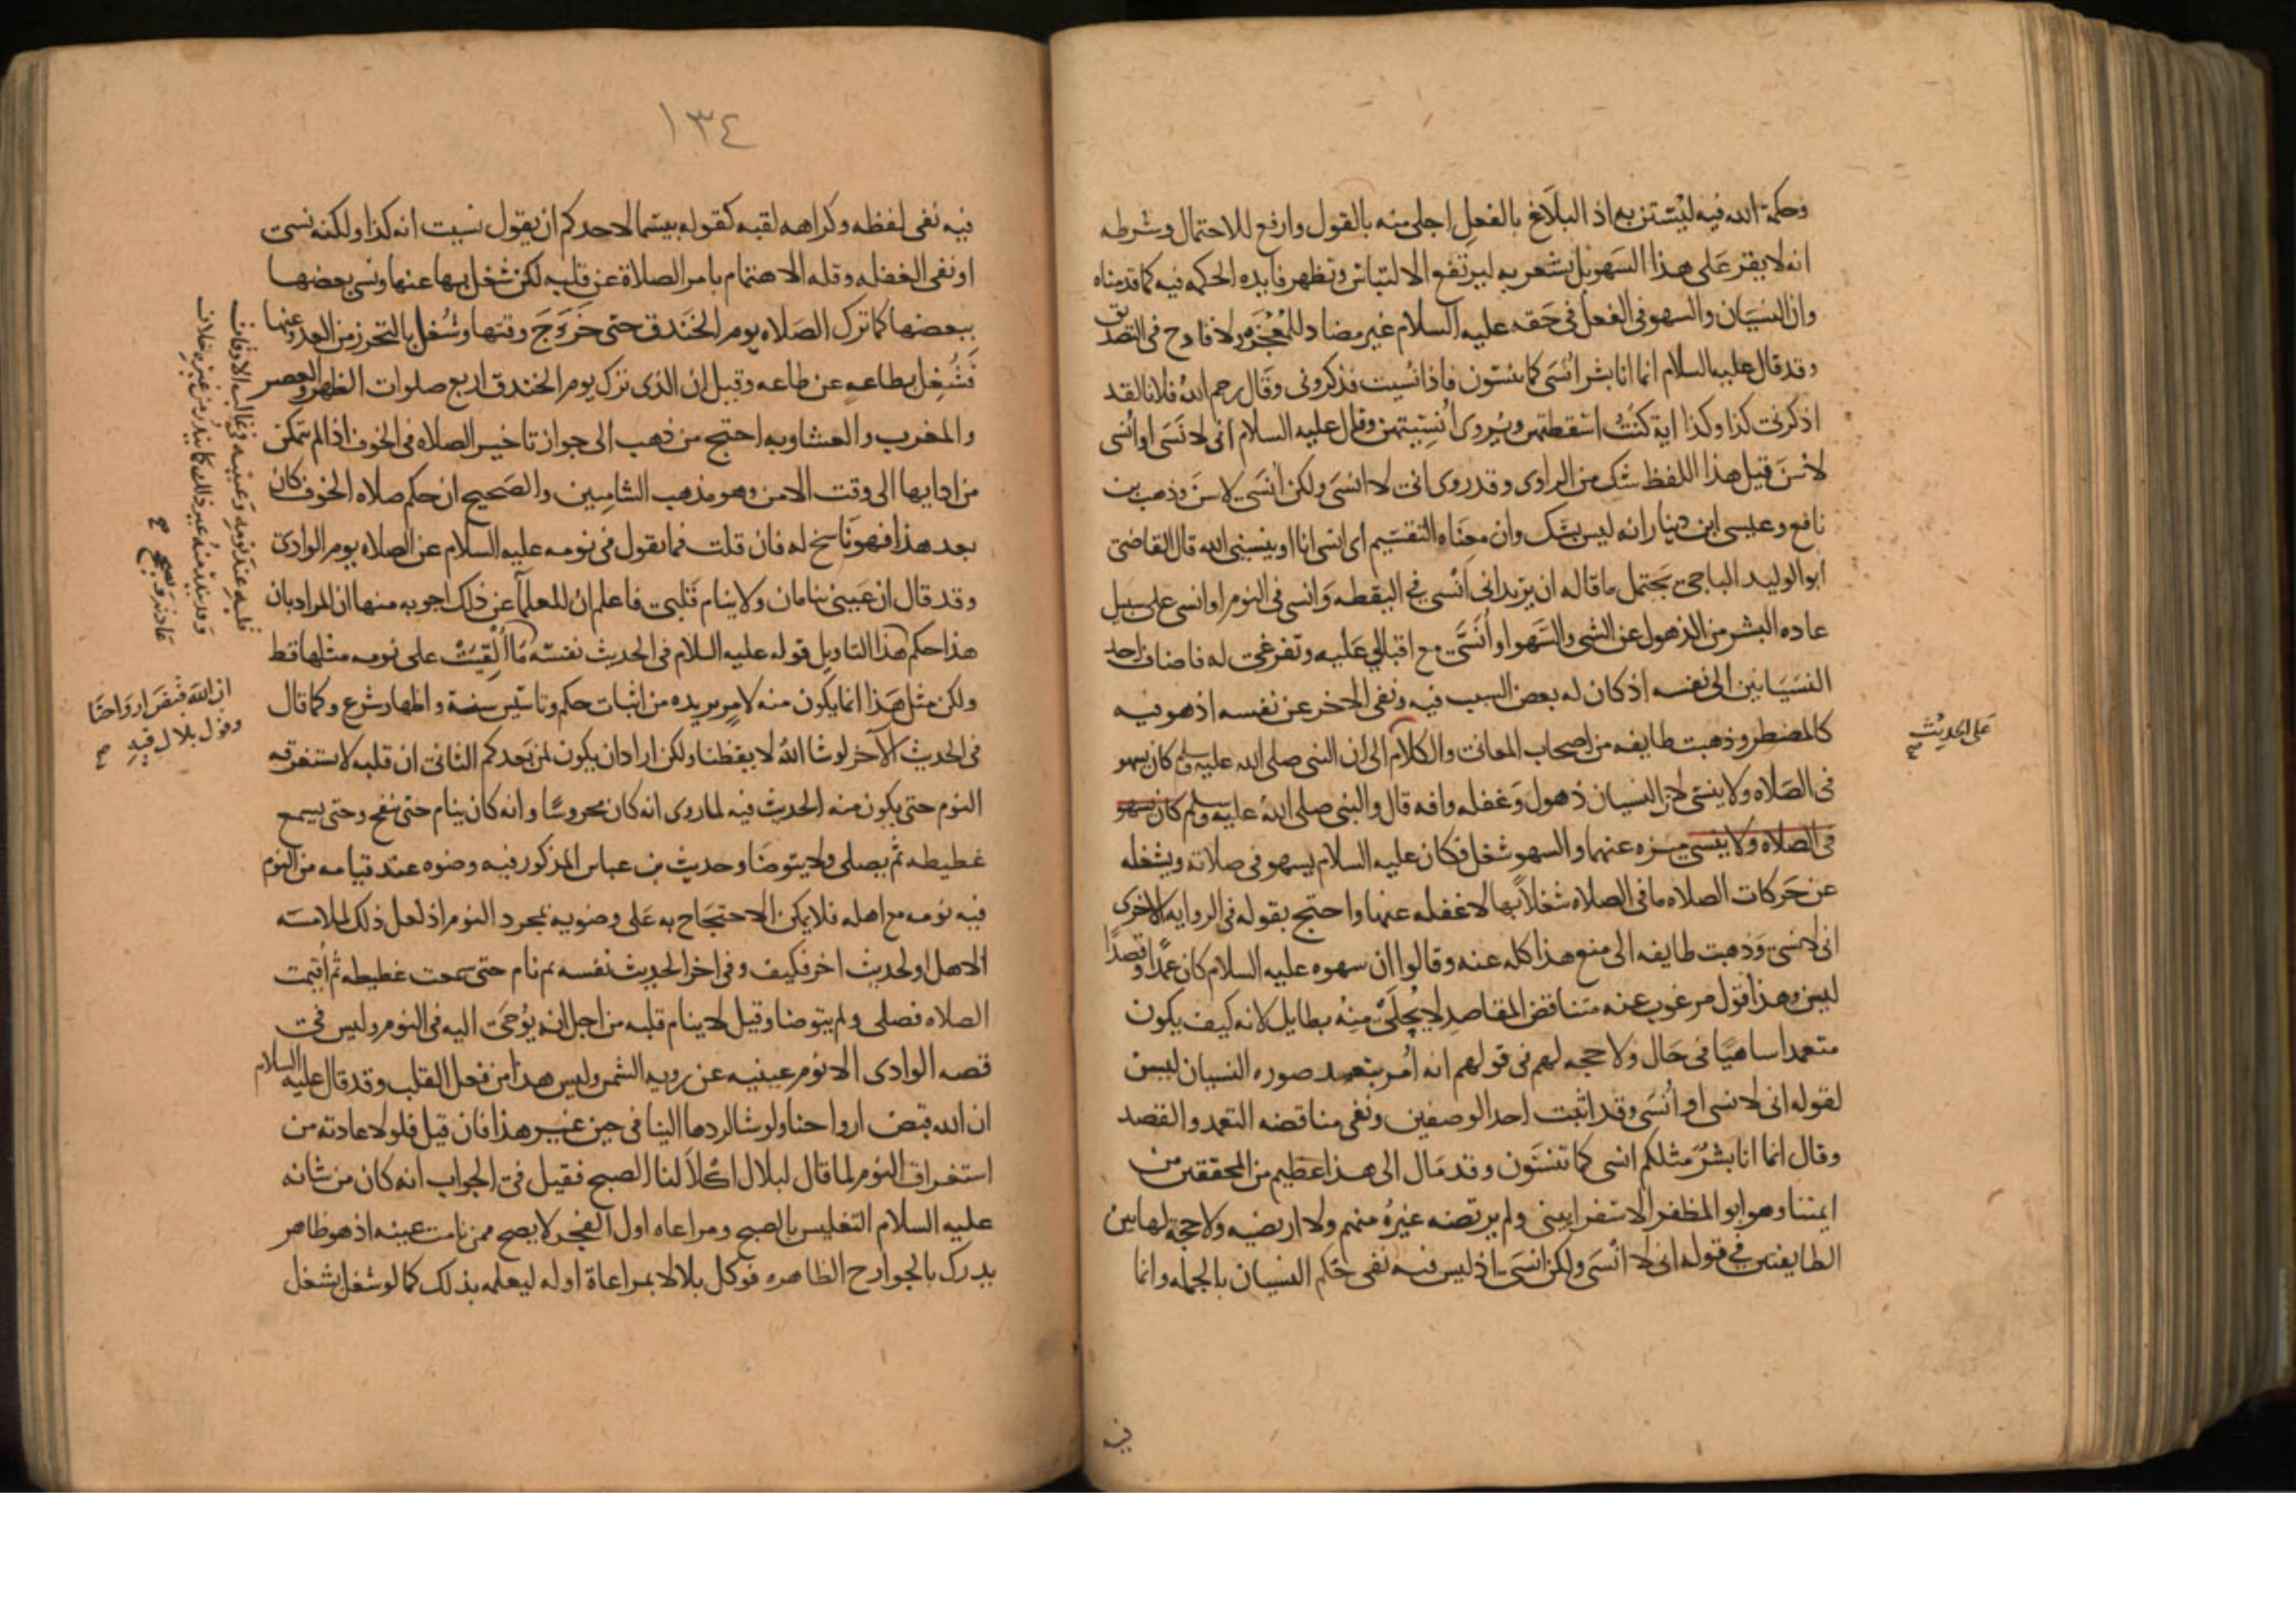 وحكمة الله فيه ليستن به اذ البلاغ بالفعل اجلى منه بالقول وارفع للاحتمال وشرطه
انه لا يقر على هذا السهو بل يشعر به ليرتفع الالتباس وتظهر فايده الحكمه فيه كما قدمناه
وان النسيان والسهو في الفعل في حقه عليه السلام غير مضاد للمعجزه ولا قادح في التصديق
وقد قال عليه السلام انما انا بشر انسى كما تنسون فاذا نسيت فذكروني وقال رحم الله فلانا لقد
اذكرني كذا وكذا اية كنت اسقطتهن ويروى انسيتهن وقال عليه السلام اني لا نسى او انسى
لاسن قيل هذا اللفظ شك من الراوى وقد روى اني لا انسى ولكن انسى لاسن وذهب بن
نافع وعيسى ابن دينار انه ليس بشك وان معناه التقسيم اى انسى انا او ينسيني الله قال القاضي
ابو الوليد الباجي يحتمل ما قاله ان يريد اني انسى في اليقظه وانسى في النوم او انسى على سبيل
عاده البشر من الذهول عن الشى والسهو او انسى مع اقبالي عليه وتفرغي له فاضاف احد
النسيانين الى نفسه اذ كان له بعض السبب فيه ونفى الاخر عن نفسه اذ هو فيه
كالمضطر وذهبت طايفه من اصحاب المعاني والكلام الى ان النبى صلى الله عليه وسلم كان يسهو
على الحديث
في الصلاه ولا ينسى لان النسيان ذهول وغفله وافه قال والنبى صلى الله عليه وسلم كان يسهو
في الصلاه ولا ينسى منزه عنهما والسهو شغل فكان عليه السلام يسهو في صلاته ويشغله
عن حركات الصلاه ما في الصلاه شغلا بها لا غفله عنها واحتج بقوله في الروايه الاخرى
اني لا نسى وذهبت طايفه الى منع هذا كله عنه وقالوا ان سهوه عليه السلام كان عمدا وقصدا
ليسن وهذا قول مرغوب عنه متناقض المقاصد لا يحلى منه بطايل لانه كيف يكون
متعمدا ساهيا في حال ولا حجه لهم في قولهم انه امر بتعمد صوره النسيان ليسن
لقوله اني لا نسى او انسى وقد اثبت احد الوصفين ونفى مناقضه التعمد والقصد
وقال انما انا بشر مثلكم انسى كما تنسون وقد مال الى هذا عظيم من المحققين من
ايمتنا وهو ابو المظفر الاسفرايينى ولم يرتضه غيره منهم ولا ارتضيه ولا حجة لهاتين
الطايفتين في قوله اني لا انسى ولكن انسى اذ ليس فيه نفى حكم النسيان بالجمله وانما
فيه
١٣٤
فيه نفى لفظه وكراهه لقبه كقوله بيسما لاحدكم ان يقول نسيت ايه كذا ولكنه نسى
او نفى الغفله وقله الاهتمام بامر الصلاة عن قلبه لكن شغل بها عنها ونسى بعضها
ببعضها كما ترك الصلاه يوم الخندق حتى خرج وقتها وشغل بالتحرز من العدو عنها
فشغل بطاعه عن طاعه وقيل ان الذى ترك يوم الخندق اربع صلوات الظهر والعصر
والمغرب والعشا وبه احتج من ذهب الى جواز تاخير الصلاه في الخوف اذا لم يتمكن
من ادايها الى وقت الامن وهو مذهب الشاميين والصحيح ان حكم صلاه الخوف كان
بعد هذا فهو ناسخ له فان قلت فما تقول في نومه عليه السلام عن الصلاه يوم الوادى
وقد قال ان عيني تنامان ولا ينام قلبي فاعلم ان للعلما عن ذلك اجوبه منها ان المراد بان
هذا حكم
قلبه عند نومه وعينيه في غالب الاوقات
وقد يندر منه غير ذلك كما يندر من غيره خلاف
عادته صح
هذا التاويل قوله عليه السلام في الحديث نفسه ما القيت على نومه مثلها قط
ان الله قبض ارواحنا
وقول بلال فيه
ولكن مثل هذا انما يكون منه لامر يريده من اثبات حكم وتاسيس سنة واظهار شرع وكما قال
في الحديث الآخر لو شا الله لايقظنا ولكن اراد ان يكون لمن بعدكم الثاني ان قلبه لا يستغرقه
النوم حتى يكون منه الحديث فيه لما روى انه كان محروسا وانه كان ينام حتى ينفخ وحتى يسمع
غطيطه ثم يصلى ولا يتوضا وحديث بن عباس المذكور فيه وضوه عند قيامه من النوم
فيه نومه مع اهله فلا يمكن الاحتجاج به على وضويه بمجرد النوم اذ لعل ذلك لملامسه
الاهل او لحدث اخر فكيف وفي اخر الحديث نفسه ثم نام حتى سمعت غطيطه ثم اقيمت
الصلاه فصلى ولم يتوضا وقيل لا ينام قلبه من اجل انه يوحى اليه في النوم وليس في
قصه الوادى الا نوم عينيه عن رويه الشمس وليس هذا من فعل القلب وقد قال عليه السلام
ان الله قبض ارواحنا ولو شا لردها الينا في حين غير هذا فان قيل فلولا عادته من
استغراق النوم لما قال لبلال اكلأ لنا الصبح فقيل في الجواب انه كان من شانه
عليه السلام التغليس بالصبح ومراعاه اول الفجر لا يصح ممن نامت عينه اذ هو ظاهر
يدرك بالجوارح الظاهره فوكل بلالا بمراعاة اوله ليعلمه بذلك كما لو شغل بشغل